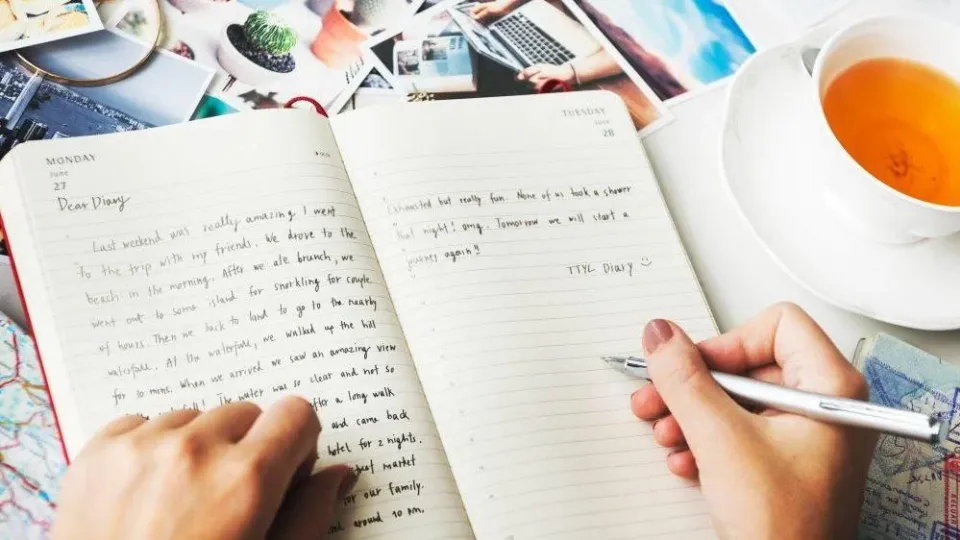 MONDAY
June
27
Dear Diary
Last weekend was really amazing I went
To the trip with my friends. We drove to the
beach in the morning. After we ate brunch, we
went out to some island for snorkling for couple
of hours. Then we back to land to go to the nearby
waterfall. At the waterfall, we walked up the hill
for 10 mins. When we arrived we saw an amazing view
waterfall! The water was so clear and not so
after a long walk
and came back
hotel for 2 nights.
market
for our family.
around 10 pm.
TUESDAY
June
28
Exhausted but really fun. None of us took a shower
that night! omg. Tomorrow we will start a
journey again!!
TTYL Diary